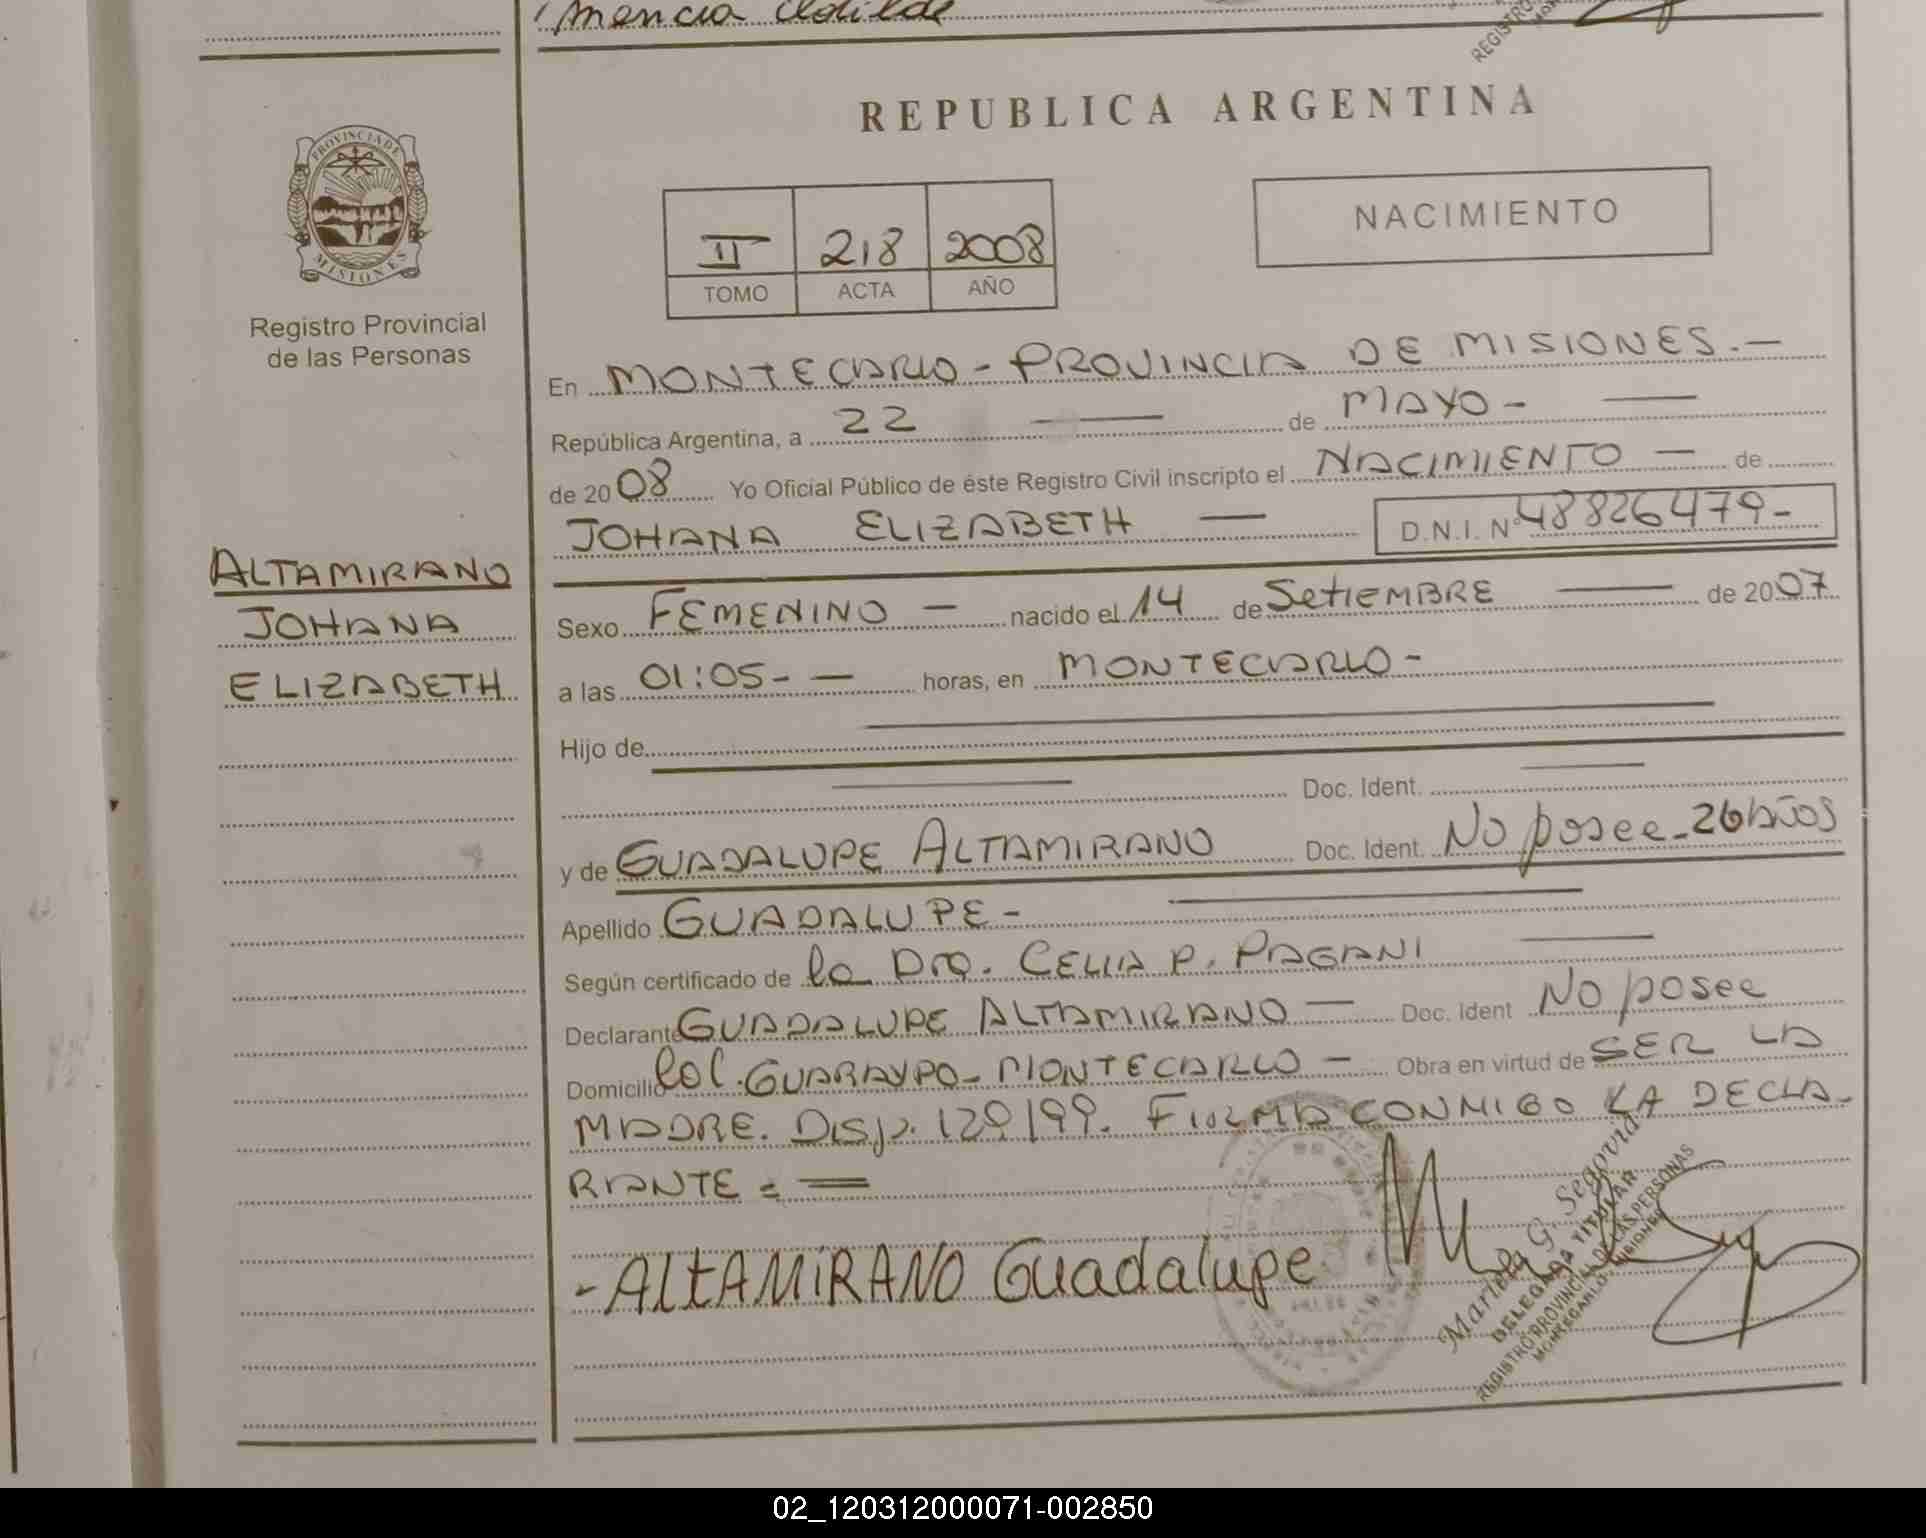 REPUBLICA ARGENTINA
PROVINCIA DE
MISIONES
Registro Provincial
de las Personas
II 218 2008
TOMO ACTA AÑO
NACIMIENTO
En MONTECARLO - PROVINCIA DE MISIONES.—
República Argentina, a 22 — de MAYO - —
de 2008 Yo Oficial Público de éste Registro Civil inscripto el NACIMIENTO — de
JOHANA ELIZABETH — D.N.I. Nº 48826479-
ALTAMIRANO
JOHANA
ELIZABETH
Sexo FEMENINO — nacido el 14 de SetIEMBRE — de 2007
a las 01:05- — horas, en MONTECARLO -
Hijo de
Doc. Ident.
y de GUADALUPE ALTAMIRANO Doc. Ident. No posee - 26 AÑOS
Apellido GUADALUPE -
Según certificado de la Dra. CELIA P. PAGANI
Declarante GUADALUPE ALTAMIRANO — Doc. Ident No posee
Domicilio Col. GUARAYPO - MONTECARLO — Obra en virtud de SER LA
MADRE. Disp. 120/99. FIRMA CONMIGO LA DECLA-
RANTE = —
- ALtAMiRANO Guadalupe
Mariela G. Segovia
DELEGADA TITULAR
REGISTRO PROVINCIAL DE LAS PERSONAS
MONTECARLO - MISIONES
02_120312000071-002850